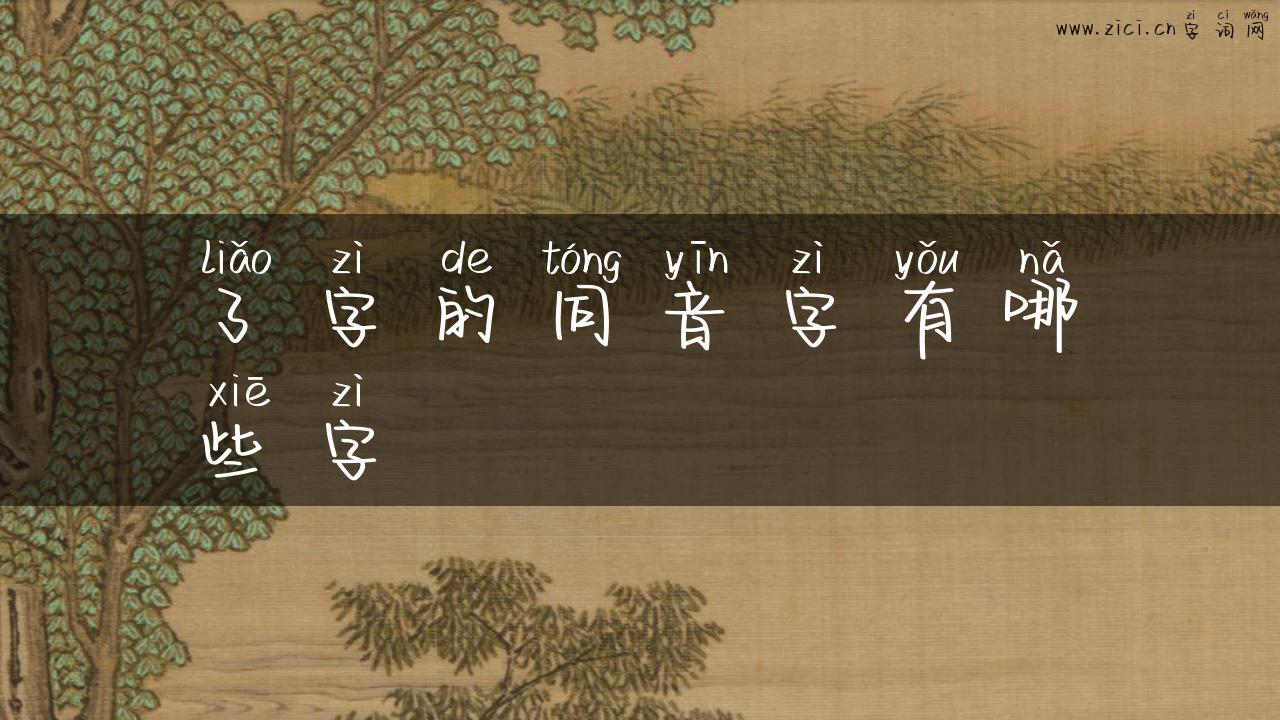 zì cí wǎng
www.zici.cn 字词网
liǎo zì de tóng yīn zì yǒu nǎ
了字的同音字有哪
xiē zì
些字